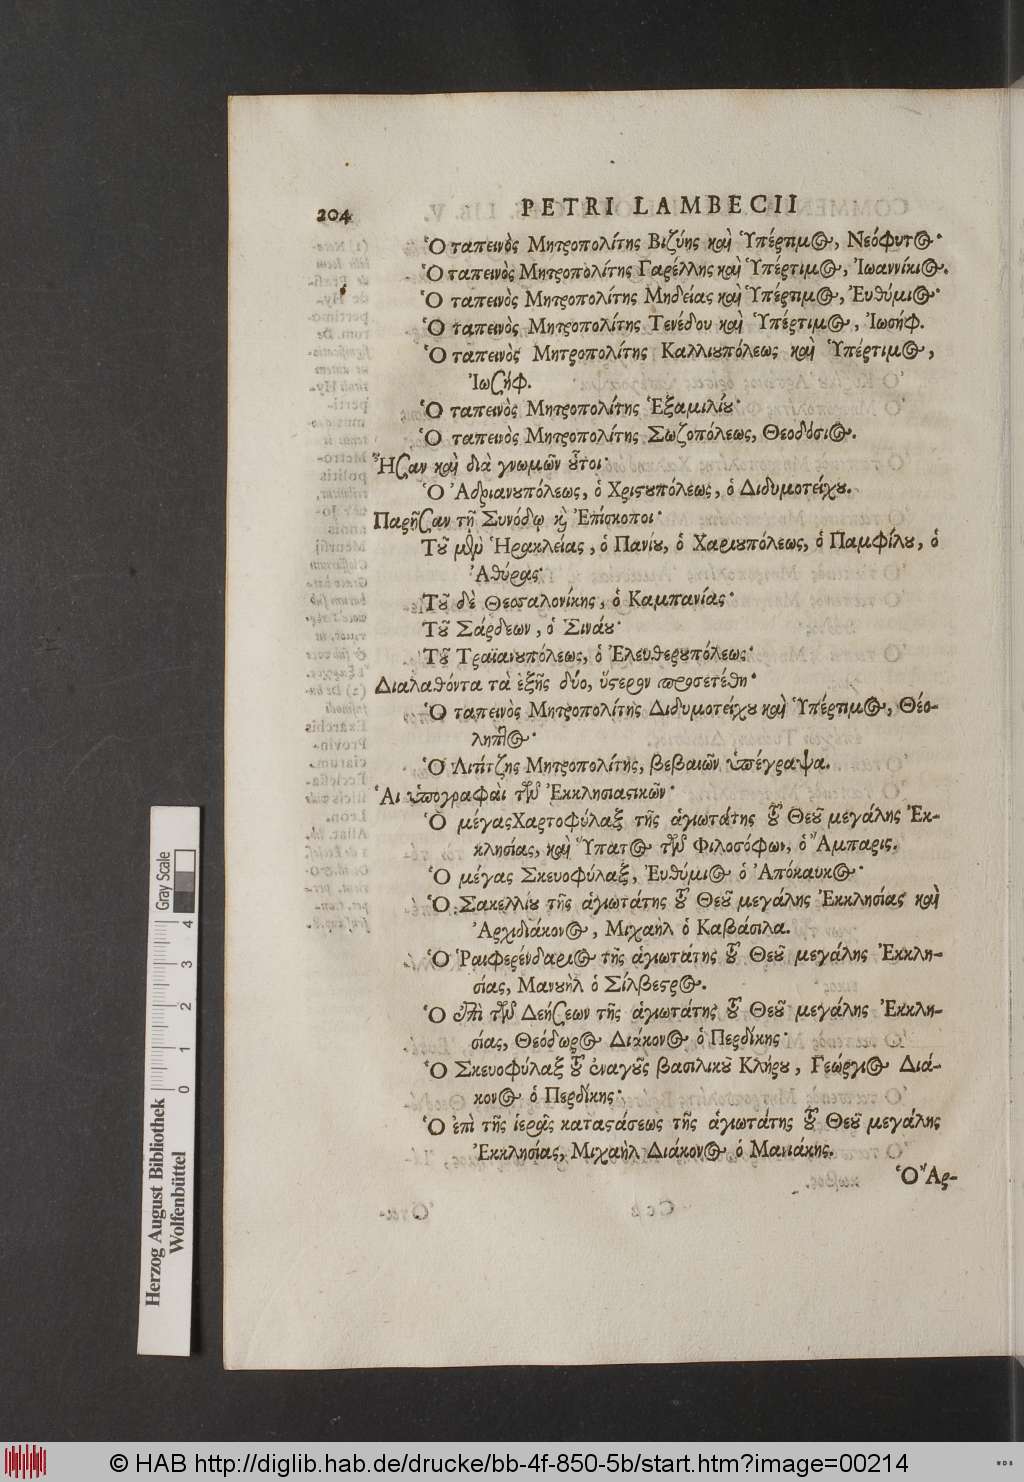 204 PETRI LAMBECII
Ὁ ταπεινὸς Μητροπολίτης Βιζύης καὶ Ὑπέρτιμος, Νεόφυτος·
Ὁ ταπεινὸς Μητροπολίτης Γαρέλλης καὶ Ὑπέρτιμος, Ἰωαννίκιος.
Ὁ ταπεινὸς Μητροπολίτης Μηδείας καὶ Ὑπέρτιμος, Ἐυθύμιος·
Ὁ ταπεινὸς Μητροπολίτης Τενέδου καὶ Ὑπέρτιμος, Ἰωσήφ.
Ὁ ταπεινὸς Μητροπολίτης Καλλιουπόλεως καὶ Ὑπέρτιμος,
Ἰωσήφ.
Ὁ ταπεινὸς Μητροπολίτης Ἑξαμιλίου·
Ὁ ταπεινὸς Μητροπολίτης Σωζοπόλεως, Θεοδόσιος.
Ἦσαν καὶ διὰ γνωμῶν οὗτοι·
Ὁ Ἀδριανουπόλεως, ὁ Χριστουπόλεως, ὁ Διδυμοτείχου.
Παρῆσαν τῇ Συνόδῳ καὶ Ἐπίσκοποι·
Τοῦ μὲν Ἡρακλείας, ὁ Πανίου, ὁ Χαριουπόλεως, ὁ Παμφίλου, ὁ
Ἀθύρας·
Τοῦ δὲ Θεσσαλονίκης, ὁ Καμπανίας·
Τοῦ Σάρδεων, ὁ Σινάου·
Τοῦ Τραϊανουπόλεως, ὁ Ἐλευθερουπόλεως·
Διαλαθόντα τὰ ἑξῆς δύο, ὕστερον προσετέθη·
Ὁ ταπεινὸς Μητροπολίτης Διδυμοτείχου καὶ Ὑπέρτιμος, Θέο-
ληπτος·
Ὁ Λιπίτζης Μητροπολίτης, βεβαιῶν ὑπέγραψα.
Ἁι ὑπογραφαὶ τῶν Ἐκκλησιαστικῶν·
Ὁ μέγας Χαρτοφύλαξ τῆς ἁγιωτάτης τοῦ Θεοῦ μεγάλης Ἐκ-
κλησίας, καὶ Ὕπατος τῶν Φιλοσόφων, ὁ Ἄμπαρις.
Ὁ μέγας Σκευοφύλαξ, Ἐυθύμιος ὁ Ἀπόκαυκος·
Ὁ Σακελλίου τῆς ἁγιωτάτης τοῦ Θεοῦ μεγάλης Ἐκκλησίας καὶ
Ἀρχιδιάκονος, Μιχαὴλ ὁ Καβάσιλα.
Ὁ Ῥαιφερένδαριος τῆς ἁγιωτάτης τοῦ Θεοῦ μεγάλης Ἐκκλη-
σίας, Μανουὴλ ὁ Σίλβεστρος.
Ὁ ἐπὶ τῶν Δεήσεων τῆς ἁγιωτάτης τοῦ Θεοῦ μεγάλης Ἐκκλη-
σίας, Θεόδωρος Διάκονος ὁ Περδίκης·
Ὁ Σκευοφύλαξ τοῦ ἐναγοῦς βασιλικοῦ Κλήρου, Γεώργιος Διά-
κονος ὁ Περδίκης·
Ὁ ἐπὶ τῆς ἱερᾶς καταστάσεως τῆς ἁγιωτάτης τοῦ Θεοῦ μεγάλης
Ἐκκλησίας, Μιχαὴλ Διάκονος ὁ Μανιάκης.
Ὁ Ἄρ-
Gray Scale
0 1 2 3 4
Herzog August Bibliothek
Wolfenbüttel
© HAB http://diglib.hab.de/drucke/bb-4f-850-5b/start.htm?image=00214